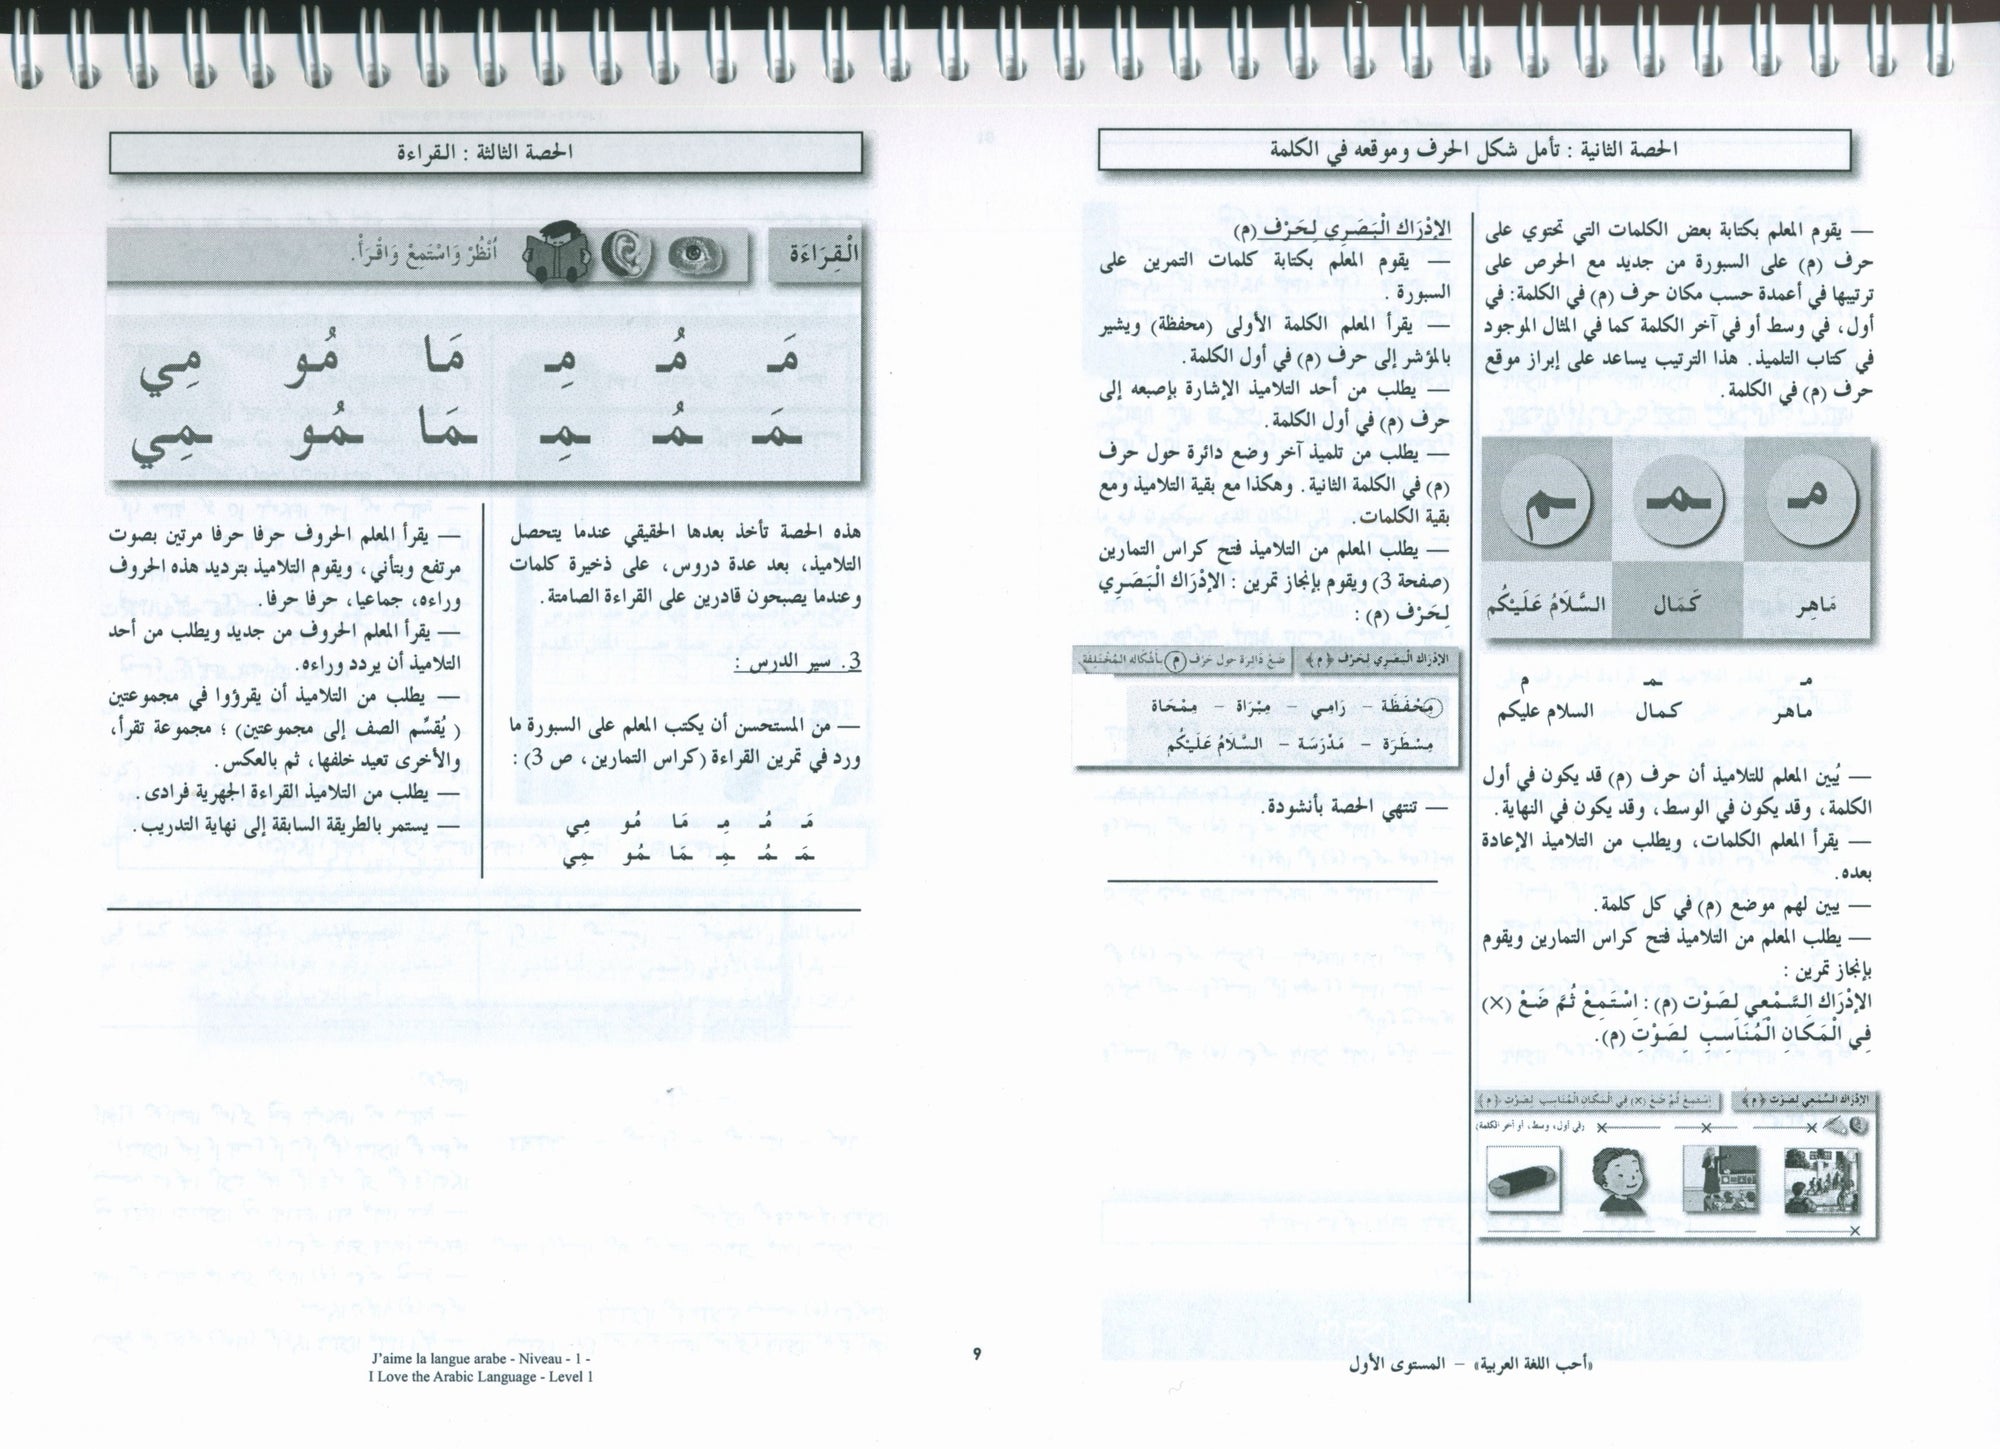 الحصة الثانية : تأمل شكل الحرف وموقعه في الكلمة
— يقوم المعلم بكتابة بعض الكلمات التي تحتوي على
حرف (م) على السبورة من جديد مع الحرص على
ترتيبها في أعمدة حسب مكان حرف (م) في الكلمة: في
أول، في وسط أو في آخر الكلمة كما في المثال الموجود
في كتاب التلميذ. هذا الترتيب يساعد على إبراز موقع
حرف (م) في الكلمة.
مـ ـمـ ـم
مَاهِر كَمَال السَّلَامُ عَلَيْكُم
مـ ـمـ م
ماهر كمال السلام عليكم
— يُبين المعلم للتلاميذ أن حرف (م) قد يكون في أول
الكلمة، وقد يكون في الوسط، وقد يكون في النهاية.
— يقرأ المعلم الكلمات، ويطلب من التلاميذ الإعادة
بعده.
— يبين لهم موضع (م) في كل كلمة.
— يطلب المعلم من التلاميذ فتح كراس التمارين ويقوم
بإنجاز تمرين :
الإدْرَاك السَّمْعِي لِصَوْت (م) : اسْتَمِعْ ثُمَّ ضَعْ (×)
فِي الْمَكَان الْمُنَاسَبِ لصَوْتِ (م).
الإدْرَاك السَّمْعِي لِصَوْت ﴿م﴾ إسْتَمِعْ ثُمَّ ضَعْ (×) فِي الْمَكَانِ الْمُنَاسِب لِصَوْتِ ﴿م﴾
(في أول، وسط، أو آخر الكلمة)
الإدْرَاك الْبَصَرِي لِحَرْف (م)
— يقوم المعلم بكتابة كلمات التمرين على
السبورة .
— يقرأ المعلم الكلمة الأولى (محفظة) ويشير
بالمؤشر إلى حرف (م) في أول الكلمة.
— يطلب من أحد التلاميذ الإشارة بإصبعه إلى
حرف (م) في أول الكلمة.
— يطلب من تلميذ آخر وضع دائرة حول حرف
(م) في الكلمة الثانية. وهكذا مع بقية التلاميذ ومع
بقية الكلمات.
— يطلب المعلم من التلاميذ فتح كراس التمارين
(صفحة 3) ويقوم بإنجاز تمرين : الإدْرَاك الْبَصَرِي
لِحَرْف (م) :
الإدْرَاك الْبَصَرِي لِحَرْف ﴿م﴾ ضَعْ دَائِرة حول حَرْف م بأشْكاله المُخْتَلِفة
مِحْفَظَة – رَامِي – مِبْرَاة – مِمْحَاة
مِسْطَرَة – مَدْرَسَة – السَّلَامُ عَلَيْكُم
— تنتهي الحصة بأنشودة.
«أحب اللغة العربية» – المستوى الأول
9
الحصة الثالثة : القراءة
الْقِرَاءَة أُنْظُرْ وَاسْتَمِعْ وَاقْرَأْ.
مَـ مُـ مِـ مَا مُو مِي
ـمَـ ـمُـ ـمِـ ـمَا ـمُو ـمِي
هذه الحصة تأخذ بعدها الحقيقي عندما يتحصل
التلاميذ، بعد عدة دروس، على ذخيرة كلمات
وعندما يصبحون قادرين على القراءة الصامتة.
3. سير الدرس :
— من المستحسن أن يكتب المعلم على السبورة ما
ورد في تمرين القراءة (كراس التمارين، ص 3) :
مَـ مُـ مِـ مَا مُو مِي
ـمَـ ـمُـ ـمِـ ـمَا ـمُو ـمِي
— يقرأ المعلم الحروف حرفا حرفا مرتين بصوت
مرتفع وبتأني، ويقوم التلاميذ بترديد هذه الحروف
وراءه، جماعيا، حرفا حرفا.
— يقرأ المعلم الحروف من جديد ويطلب من أحد
التلاميذ أن يردد وراءه.
— يطلب من التلاميذ أن يقرؤوا في مجموعتين
( يُقسِّم الصف إلى مجموعتين) ؛ مجموعة تقرأ،
والأخرى تعيد خلفها، ثم بالعكس.
— يطلب من التلاميذ القراءة الجهرية فرادى.
— يستمر بالطريقة السابقة إلى نهاية التدريب.
J'aime la langue arabe - Niveau - 1 -
I Love the Arabic Language - Level 1